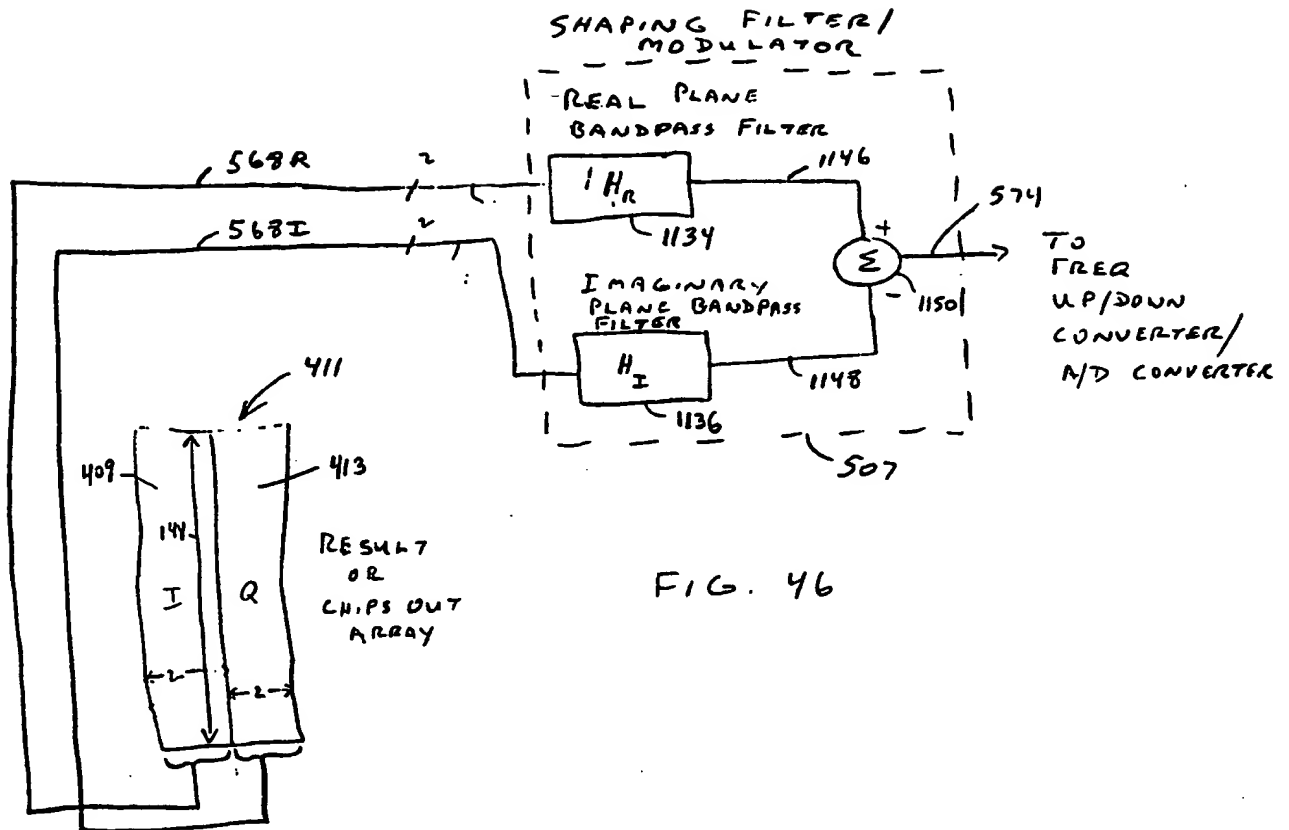 SHAPING FILTER/
MODULATOR
REAL PLANE
BANDPASS FILTER
568R
2
H R
1146
1134
574
568I
2
+
Σ
-
1150
TO
FREQ
UP/DOWN
CONVERTER/
A/D CONVERTER
IMAGINARY
PLANE BANDPASS
FILTER
H I
1148
1136
507
411
409
413
144
I
Q
RESULT
OR
CHIPS OUT
ARRAY
2
2
FIG. 46